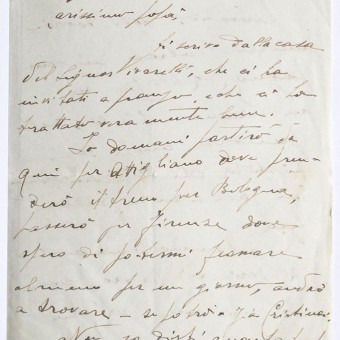 arissimo papà,
Ti scrivo dalla casa
del signor , che ci ha
invitati a pranzo, e che ci ha
trattato veramente bene.
Io domani partirò da
qui per Attigliano dove pren-
derò il treno per Bologna,
passerò per Firenze dove
spero di potermi fermare
almeno per un giorno, andrò
a trovare – se potrò – Cristina.
Non so